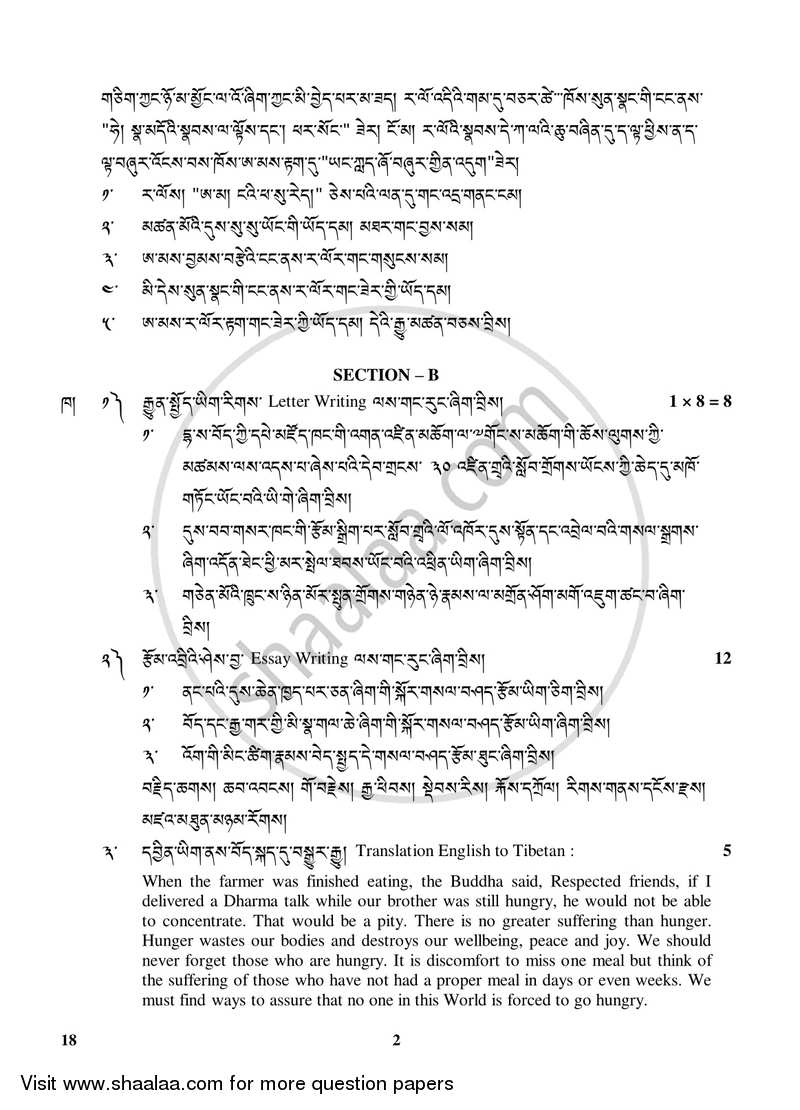 གཅིག་ཀྱང་ཉོ་མ་མྱོང་ལ་འོ་ཞིག་ཀྱང་མི་བྱེད་པར་མ་ཟད། ར་ལོ་འདིའི་གམ་དུ་བཅར་ཚེ་ཁོས་སུན་སྣང་གི་ངང་ནས་
"ཧེ། སྣ་མདོའི་སྣབས་ལ་ལྟོས་དང་། ཕར་སོང་" ཟེར། ངོ་མ། ར་ལོའི་སྣབས་དེ་ཀ་ལའི་ཆུ་བཞིན་དུ་ད་ལྟ་ཕྱིས་ན་ད་
ལྟ་བཞུར་འོངས་བས་ཁོས་ཨ་མས་རྟག་ཏུ་"ཡང་ཀླད་ཞོ་བཞུར་གྱིན་འདུག"ཟེར།
༡་ ར་ལོས། "ཨ་མ། ངའི་ཕ་སུ་རེད།" ཅེས་པའི་ལན་དུ་གང་འདྲ་གནང་ངམ།
༢་ མཚན་མོའི་དུས་སུ་སུ་ཡོང་གི་ཡོད་དམ། མཐར་གང་བྱས་སམ།
༣་ ཨ་མས་བྱམས་བརྩེའི་ངང་ནས་ར་ལོར་གང་གསུངས་སམ།
༤་ མི་དེས་སུན་སྣང་གི་ངང་ནས་ར་ལོར་གང་ཟེར་གྱི་ཡོད་དམ།
༥་ ཨ་མས་ར་ལོར་རྟག་གང་ཟེར་ཀྱི་ཡོད་དམ། དེའི་རྒྱུ་མཚན་བཅས་བྲིས།
SECTION – B
ཁ། ༡༽ རྒྱུན་སྤྱོད་ཡིག་རིགས་ Letter Writing ལས་གང་རུང་ཞིག་བྲིས། 1 × 8 = 8
༡་ རྡ་ས་བོད་ཀྱི་དཔེ་མཛོད་ཁང་གི་འགན་འཛིན་མཆོག་ལ་༸གོང་ས་མཆོག་གི་ཆོས་ལུགས་ཀྱི་
མཚམས་ལས་འདས་པ་ཞེས་པའི་དེབ་གྲངས་ ༣༠ འཛིན་གྲྭའི་སློབ་གྲོགས་ཡོངས་ཀྱི་ཆེད་དུ་མཁོ་
གཏོང་ཡོང་བའི་ཡི་གེ་ཞིག་བྲིས།
༢་ དུས་བབ་གསར་ཁང་གི་རྩོམ་སྒྲིག་པར་སློབ་གྲྭའི་ལོ་འཁོར་དུས་སྟོན་དང་འབྲེལ་བའི་གསལ་སྒྲགས་
ཞིག་འདོན་ཐེང་ཕྱི་མར་སྤེལ་ཐབས་ཡོང་བའི་འཕྲིན་ཡིག་ཞིག་བྲིས།
༣་ གཅེན་མོའི་ཁྲུང་ས་ཉིན་མོར་སྤུན་གྲོགས་གཉེན་ཉེ་རྣམས་ལ་མགྲོན་ཤོག་མགོ་འཇུག་ཚང་བ་ཞིག་
བྲིས།
༢༽ རྩོམ་འབྲིའི་ཤེས་བྱ་ Essay Writing ལས་གང་རུང་ཞིག་བྲིས། 12
༡་ ནང་པའི་དུས་ཆེན་ཁྱད་པར་ཅན་ཞིག་གི་སྐོར་གསལ་བཤད་རྩོམ་ཡིག་ཅིག་བྲིས།
༢་ བོད་དང་རྒྱ་གར་གྱི་མི་སྣ་གལ་ཆེ་ཞིག་གི་སྐོར་གསལ་བཤད་རྩོམ་ཡིག་ཞིག་བྲིས།
༣་ འོག་གི་མིང་ཚིག་རྣམས་བེད་སྤྱད་དེ་གསལ་བཤད་རྩོམ་ཐུང་ཞིག་བྲིས།
བརྗིད་ཆགས། ཆབ་འབངས། གོ་བརྗེས། རྒྱ་ཕིབས། སྡེབས་རིས། རྐོས་དཀྲོལ། རིགས་གནས་དངོས་རྫས།
མཛའ་མཐུན་མཉམ་རོགས།
༣་ དབྱིན་ཡིག་ནས་བོད་སྐད་དུ་བསྒྱུར་རྒྱུ། Translation English to Tibetan : 5
When the farmer was finished eating, the Buddha said, Respected friends, if I
delivered a Dharma talk while our brother was still hungry, he would not be able
to concentrate. That would be a pity. There is no greater suffering than hunger.
Hunger wastes our bodies and destroys our wellbeing, peace and joy. We should
never forget those who are hungry. It is discomfort to miss one meal but think of
the suffering of those who have not had a proper meal in days or even weeks. We
must find ways to assure that no one in this World is forced to go hungry.
18 2
shaalaa.com
Visit www.shaalaa.com for more question papers